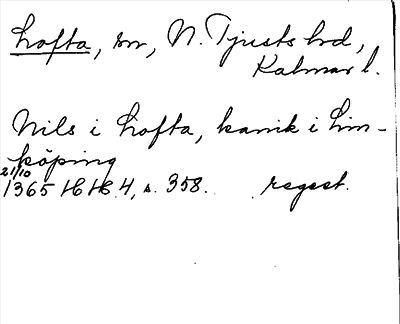 Lofta, sn, N. Tjusts hd,
Kalmar l.
Nils i Lofta, kanik i Lin-
köping
21/10
1365 HH 4, s. 358. regest.